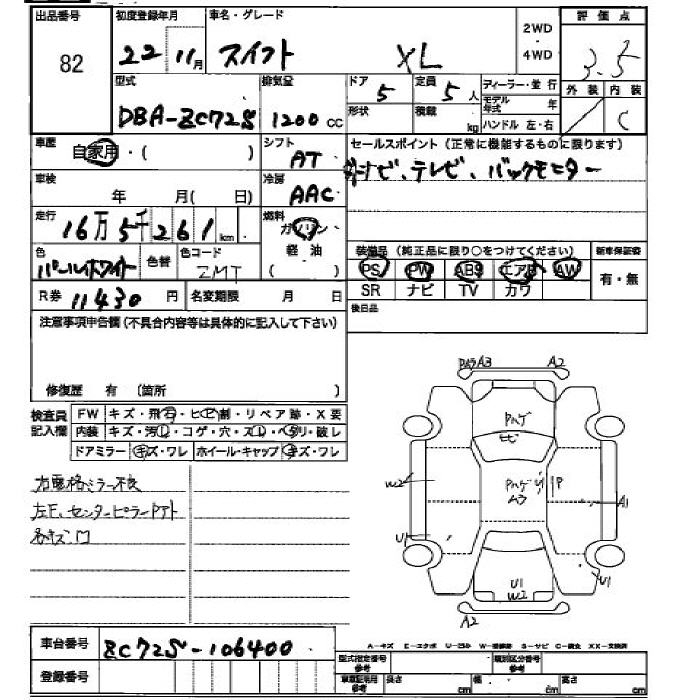 出品番号 初度登録年月 車名・グレード 2WD・4WD 評価点
82 22 11月 スイフト XL 3.5
型式 排気量 ドア 定員 ディーラー・並行 外装 内装
DBA-ZC72S 1200cc 5 5人 モデル年式 年 C
形状 積載 kg ハンドル 左・右
車歴 自家用・( ) シフト AT セールスポイント(正常に機能するものに限ります)
ナビ、テレビ、バックモニター
車検 年 月( 日) 冷房 AAC
走行 16万5千261km 燃料 ガソリン 軽油 ( )
色 パールホワイト 色替 色コード ZMT
装備品(純正品に限り○をつけてください) 新車保証書
PS PW ABS エアB AW 有・無
SR ナビ TV カワ
R券 11430円 名変期限 月 日 後日品
注意事項申告欄(不具合内容等は具体的に記入して下さい)
修復歴 有 (箇所 )
検査員記入欄 FW キズ・飛石・ヒビ割・リペア跡・X要
内装 キズ・汚レ・コゲ・穴・スレ・ベタリ・破レ
ドアミラー キズ・ワレ ホイール・キャップ キズ・ワレ
左下、センターピラー
A3 A2
ハゲ
ヒビ
W2 ハゲ A3 P A1
U1
U1 W2 U1
A2
車台番号 ZC72S-106400
A-キズ E-エクボ U-凹み W-補修跡 S-サビ C-腐食 XX-交換済
登録番号
型式指定番号参考 類別区分番号参考
車庫証明用参考 長さ cm 幅 cm 高さ cm